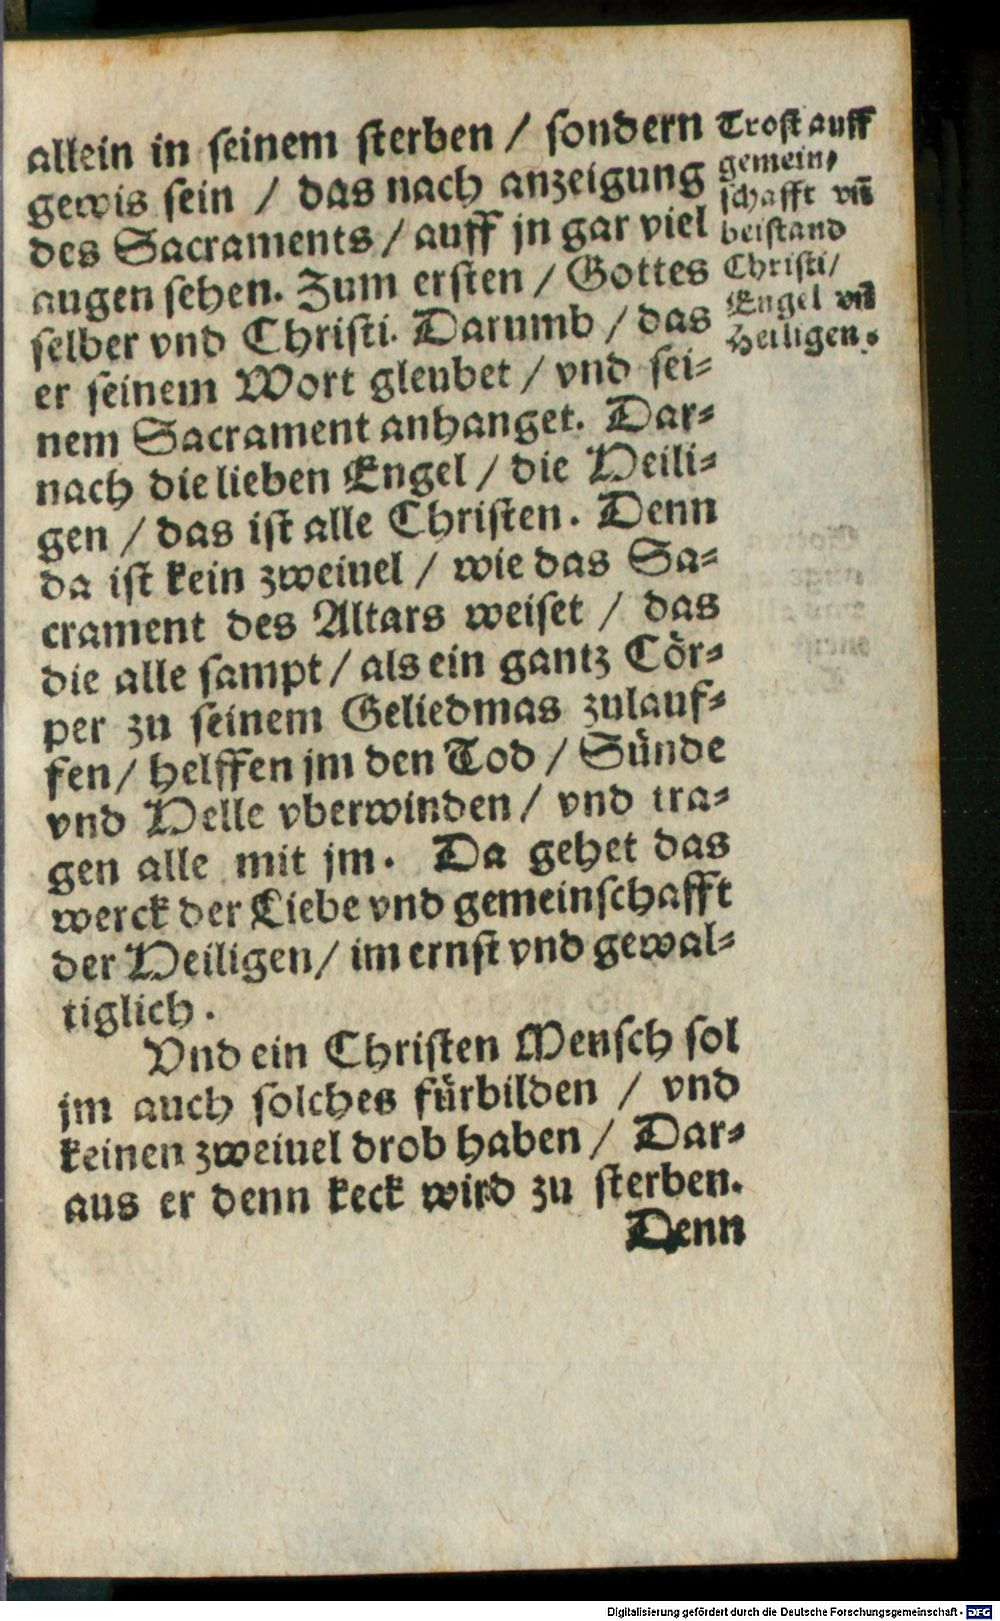 allein in seinem sterben / sondern
gewis sein / das nach anzeigung
des Sacraments / auff jn gar viel
augen sehen. Zum ersten / Gottes
selber vnd Christi. Darumb / das
er seinem Wort gleubet / vnd sei⸗
nem Sacrament anhanget. Dar⸗
nach die lieben Engel / die Heili⸗
gen / das ist alle Christen. Denn
da ist kein zweiuel / wie das Sa⸗
crament des Altars weiset / das
die alle sampt / als ein gantz Cör⸗
per zu seinem Geliedmas zulauf⸗
fen / helffen jm den Tod / Sünde
vnd Helle vberwinden / vnd tra⸗
gen alle mit jm. Da gehet das
werck der Liebe vnd gemeinschafft
der Heiligen / im ernst vnd gewal⸗
tiglich.
Vnd ein Christen Mensch sol
jm auch solches fürbilden / vnd
keinen zweiuel drob haben / Dar⸗
aus er denn keck wird zu sterben.
Denn
Trost auff
gemein⸗
schafft vñ
beistand
Christi /
Engel vñ
Heiligen.
Digitalisierung gefördert durch die Deutsche Forschungsgemeinschaft - DFG